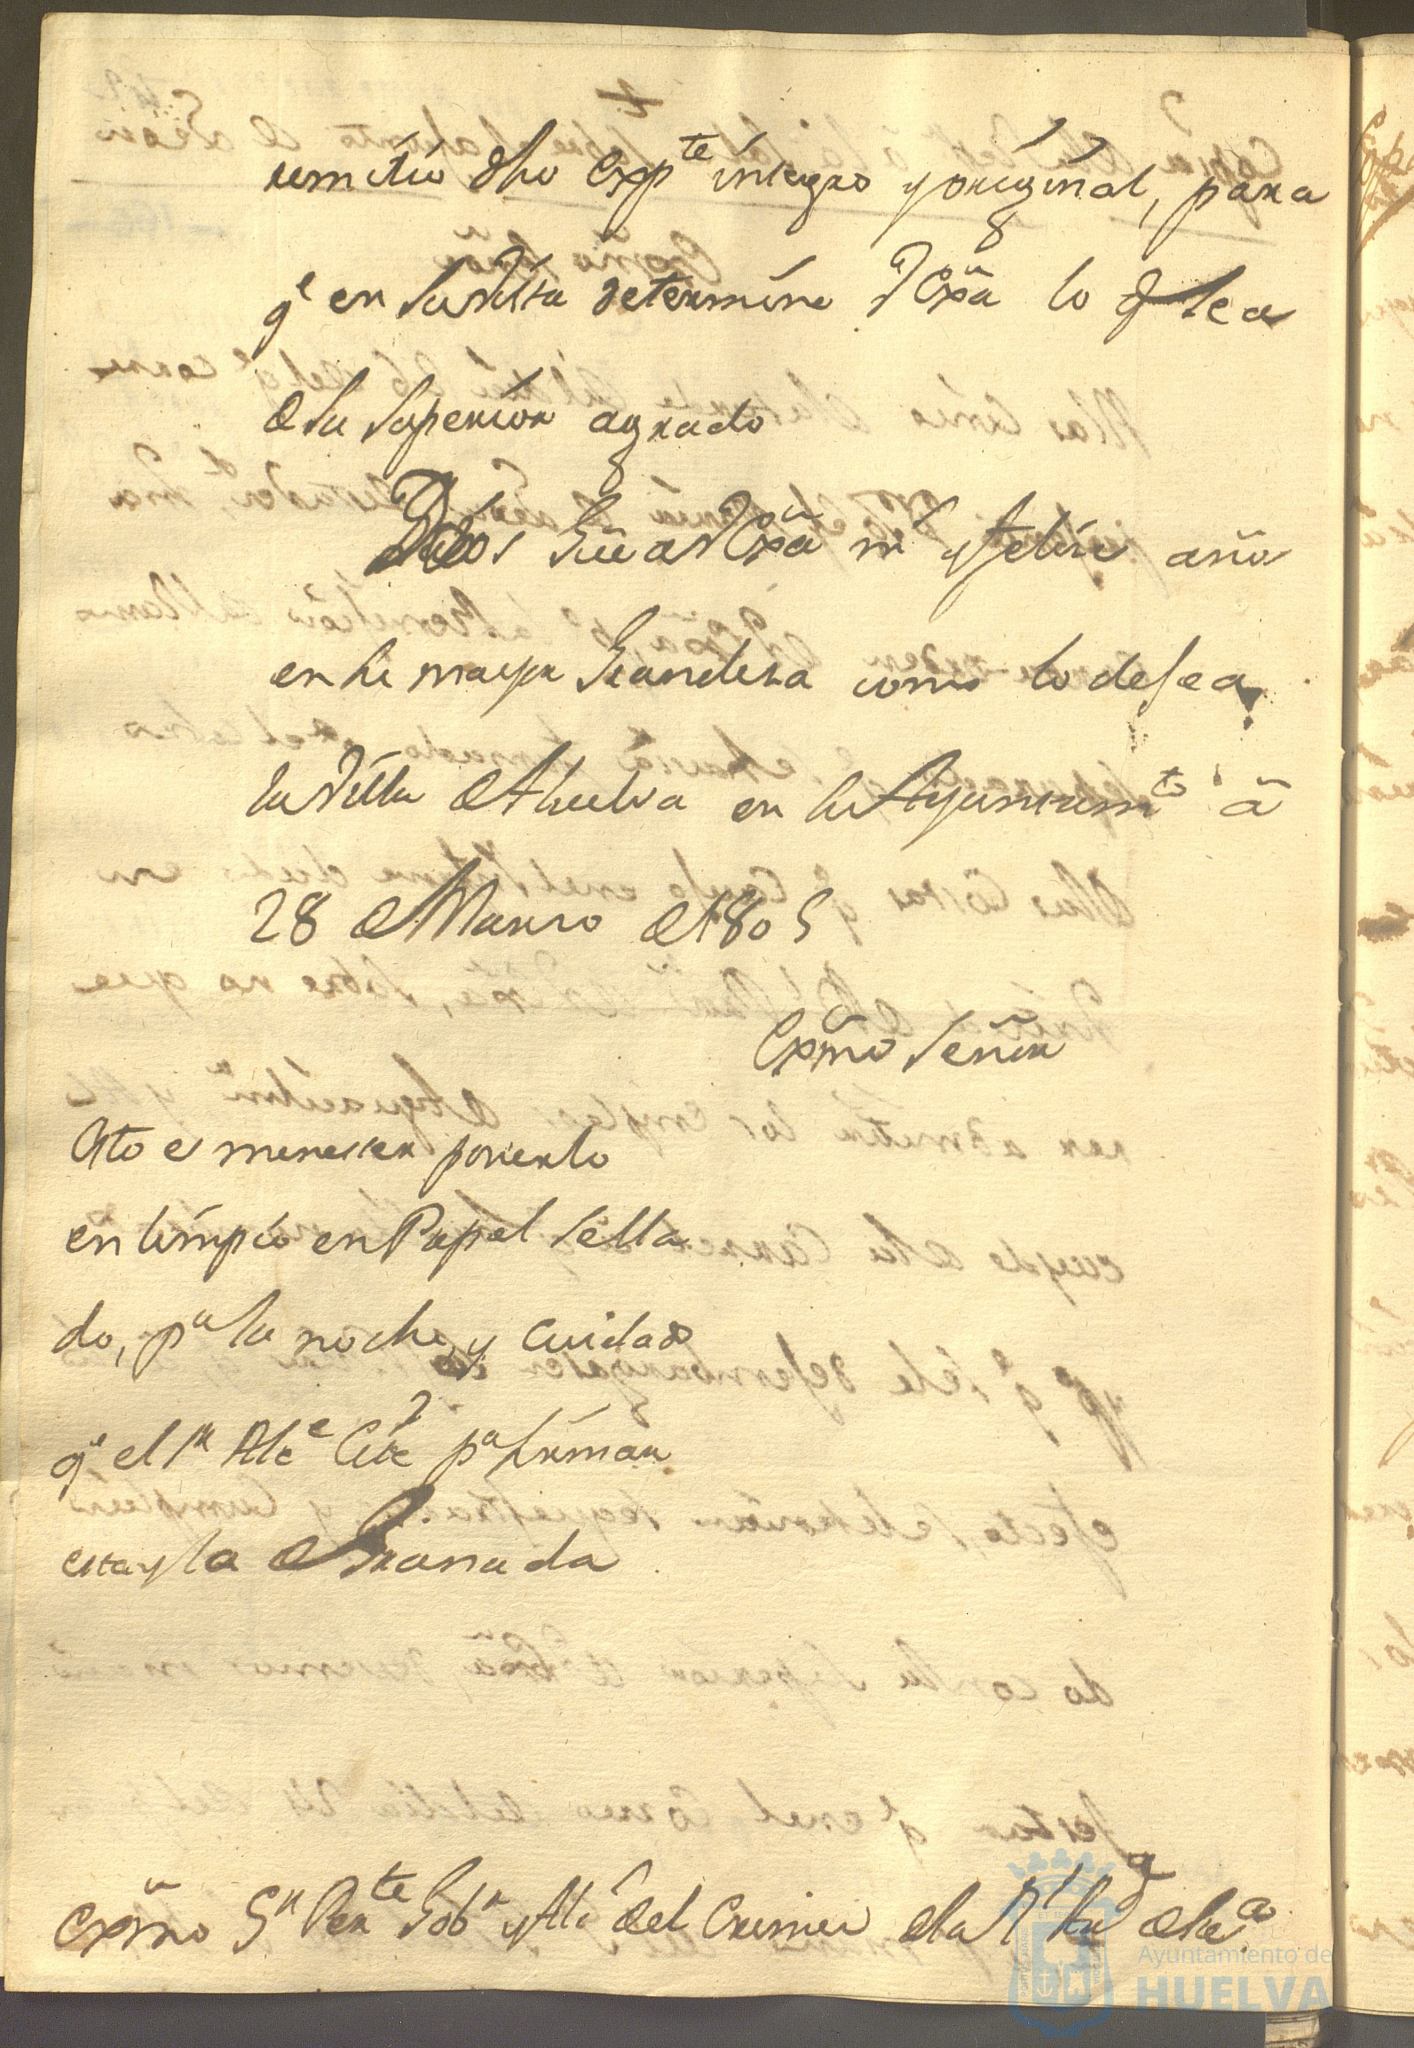 remitio dho Expte integro y original, para
qe en su vista determine V Exa lo q sea
de su superior agrado
Dios Gue a V Exa ms y felices años
en la mayor Grandeza como lo desea
la Villa de Huelva en su Ayuntamto a
28 de Marzo de 1805
Exmo Señor
Esto es menester ponerlo
en limpio en Papel Sella
do, pa la noche, y cuidado
qe el Sr Alce Cite pa firmar
esta y la de Granada
Exmo Sr Gobr y Alc del Crimen de la Rl Auda de
Ayuntamiento de
HUELVA